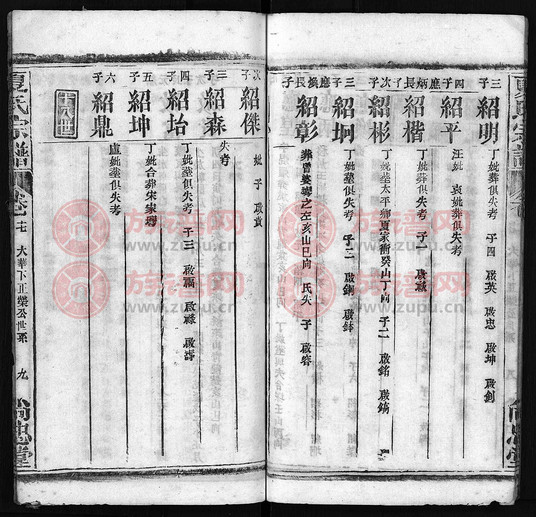 夏氏宗譜
三子
紹明
丁妣墓俱失考 子四 啟英 啟忠 啟坤 啟創
四子
紹平
汪妣 袁妣葬俱失考
應炳長子
紹楷
丁妣葬俱失考 子一 啟
次子
紹彬
丁妣墓太平鄉夏家衝癸山丁向 子二 啟銘 啟鎬
三子
紹坰
丁妣墓俱失考 子二 啟鋼 啟鋒
應溪長子
紹彰
葬曾 之左亥山巳向 氏失 子 啟睿
次子
紹傑
妣 子 啟
三子
紹森
失考
四子
紹坮
丁妣墓俱失考 子三 啟福 啟祿 啟壽
五子
紹坤
丁妣合葬宋家塆
六子
紹鼎
盧妣墓俱失考
十八世
夏氏宗譜
卷 大華下正榮公世系 九
尚忠堂
族譜网
www.zupu.cn